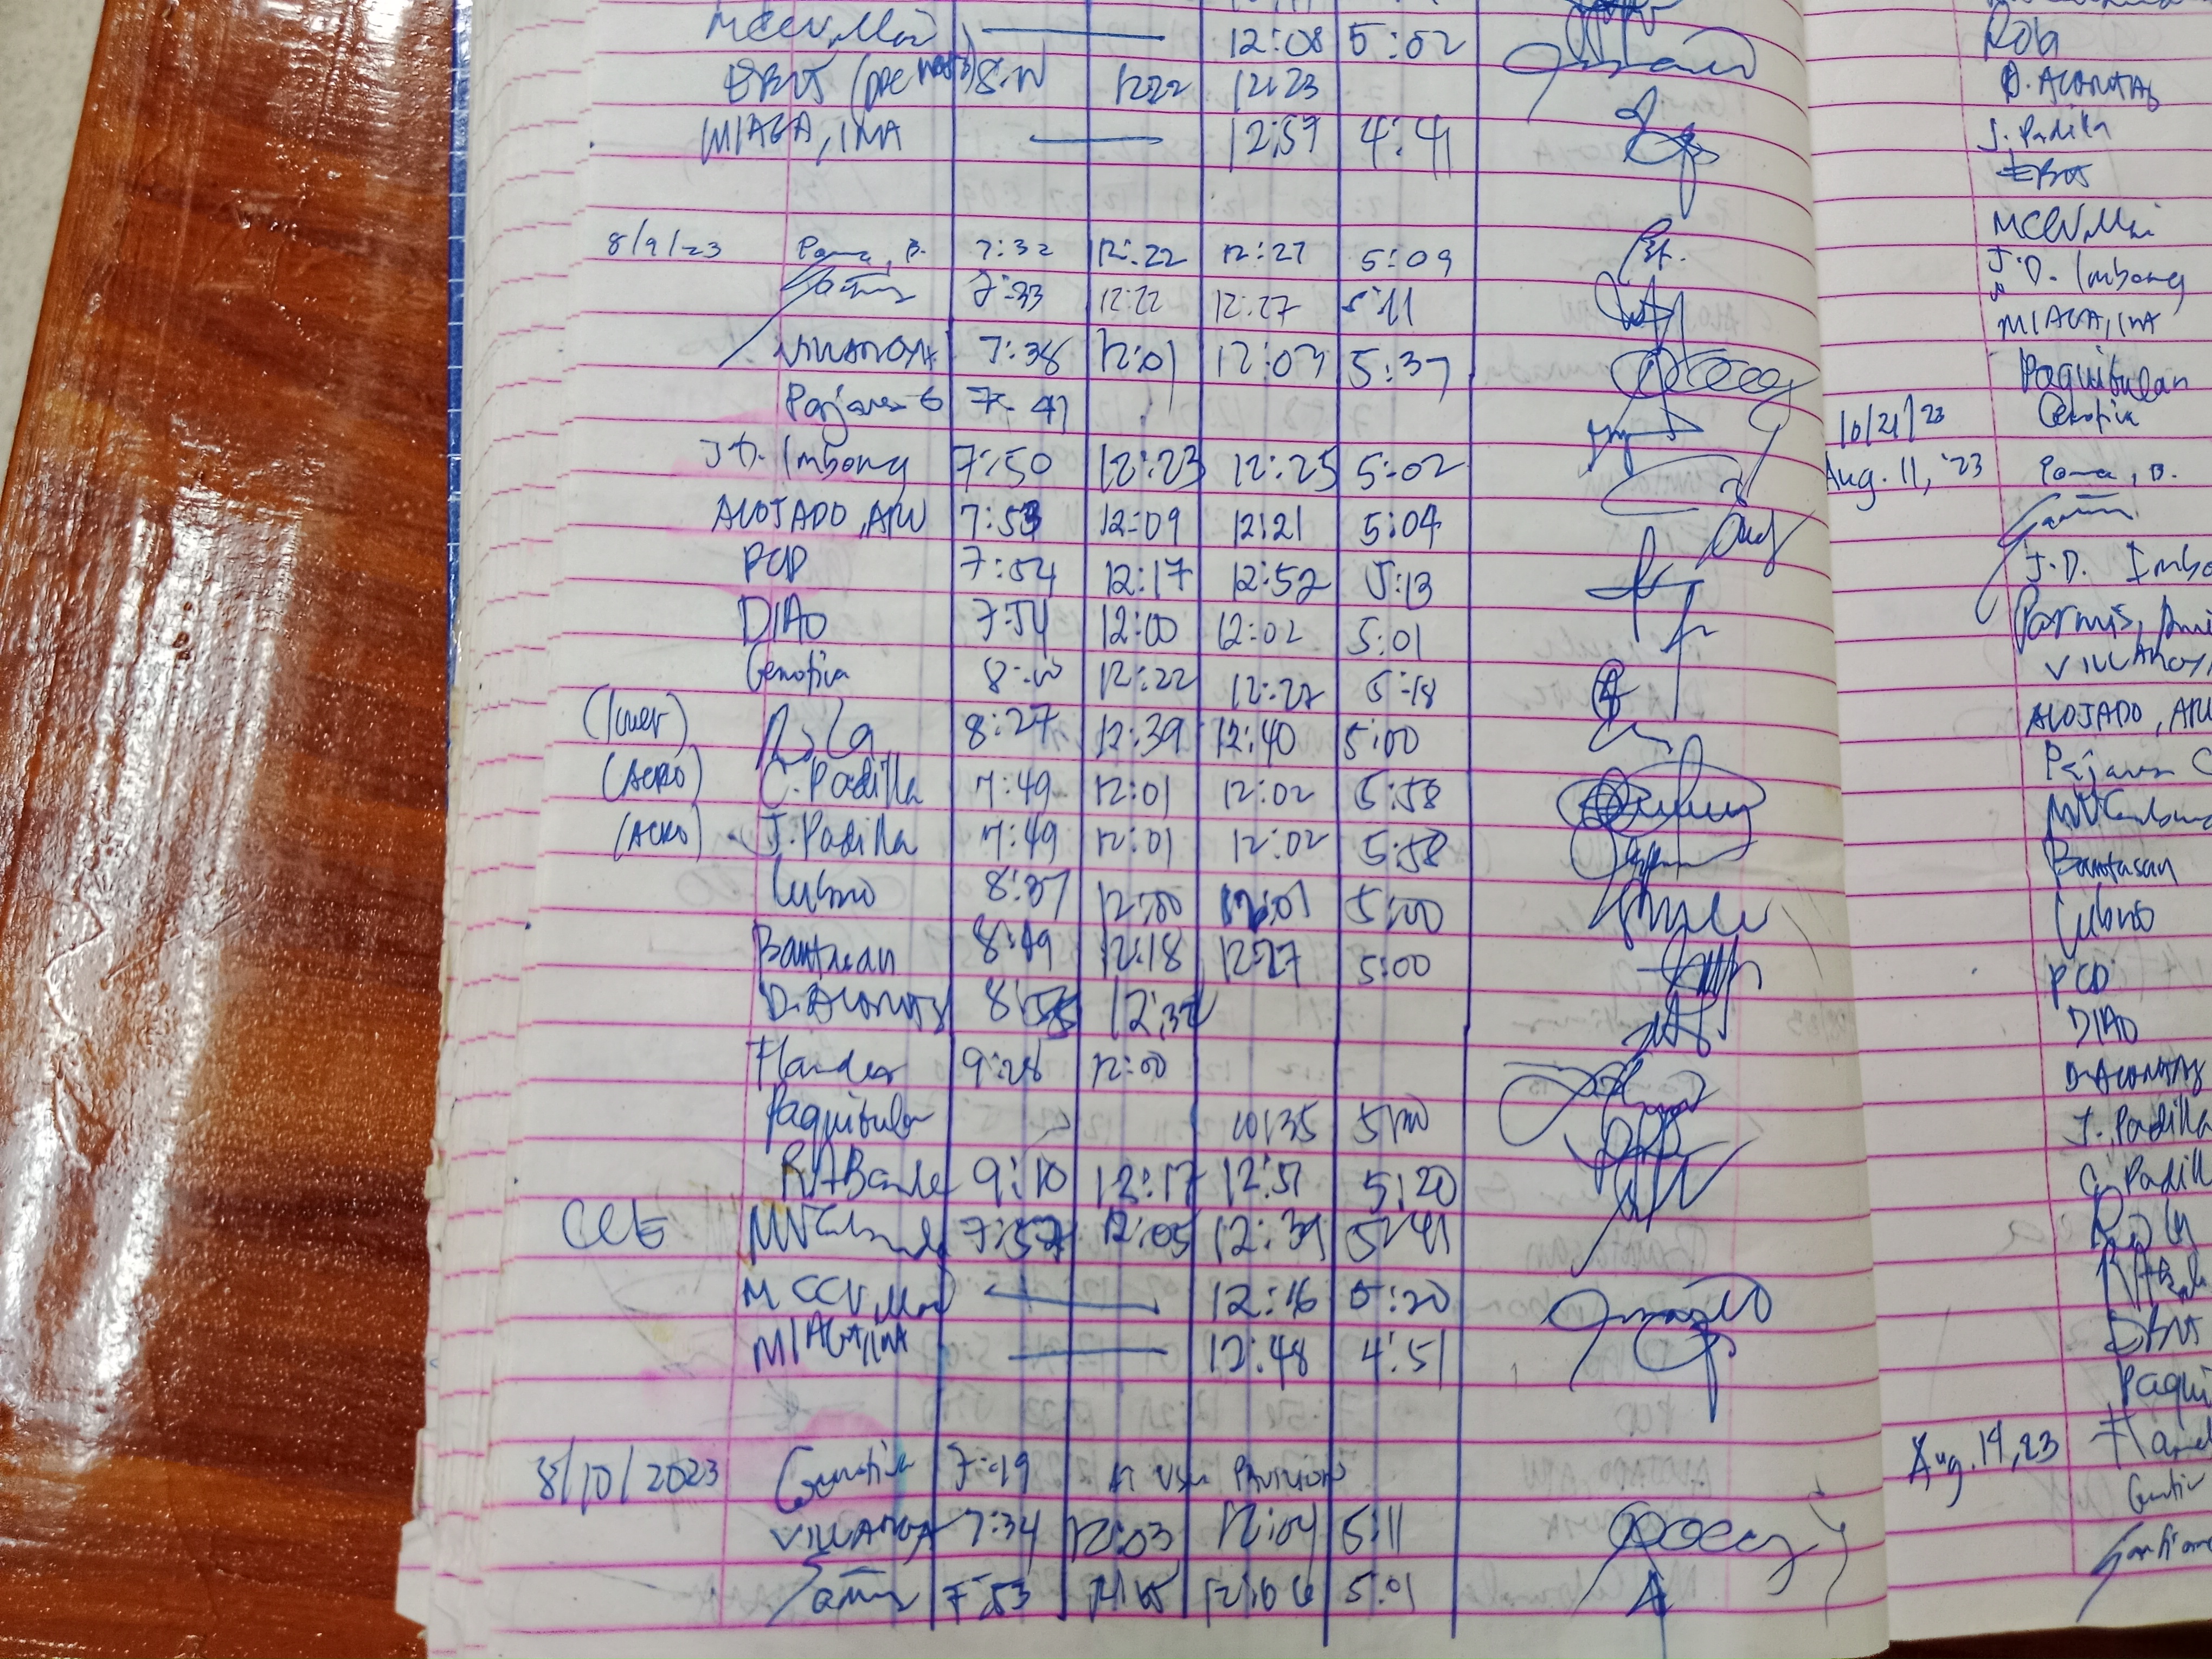 MCCV, Mai 12:08 5:02
EBVJ 8:10 1222 12:23
MIAGA, INA 12:57 4:41
8/9/23 Poma, B. 7:32 12:22 12:27 5:09
7:33 12:22 12:27 5:11
VILLANOYA 7:38 12:01 12:03 5:37
Pajares G 7:41
J.D. Imbong 7:50 12:23 12:25 5:02
ALOJADO, APW 7:53 12:09 12:21 5:04
PCD 7:54 12:17 12:52 5:13
DIAO 7:54 12:00 12:02 5:01
Genotiva 8:00 12:22 12:27 5:18
Rola 8:27 12:39 12:40 5:00
(ACRO) C. Padilla 7:49 12:01 12:02 5:58
(ACRO) J. Padilla 7:49 12:01 12:02 5:58
Lubno 8:37 12:00 12:01 5:00
Bantasan 8:49 12:18 12:27 5:00
D. ALCONTAS 8:58 12:32
Flandes 9:28 12:00
Paquibulan 10:35 5:00
9:10 12:17 12:51 5:20
7:57 12:05 12:39 5:41
MCCV, Mai 12:16 5:20
MIAGA, INA 12:48 4:51
8/10/2023 Genotiva 7:19
VILLANOYA 7:34 12:03 12:04 5:11
7:53 12:05 12:06 5:01
Rola
D. ALCONTAS
J. Padilla
EBVJ
MCCV, Mai
J.D. Imbong
MIAGA, INA
Paquibulan
10/21/23 Genotiva
Aug. 11, '23 Poma, B.
J.D. Imbo
Parmis, Ami
VILLANOY
ALOJADO, APW
Pajares C
Bantasan
Lubno
PCD
DIAO
D. ALCONTAS
J. Padilla
C. Padilla
Rola
EBVJ
Paqui
Aug. 14, 23 Fland
Genotiv